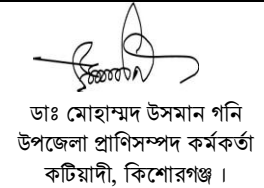 ডাঃ মোহাম্মদ উসমান গনি
উপজেলা প্রাণিসম্পদ কর্মকর্তা
কটিয়াদী, কিশোরগঞ্জ ।